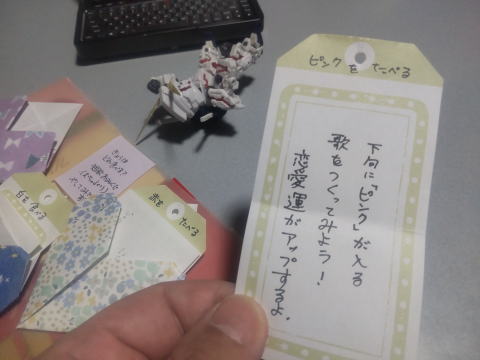 ピンクをたべる
下句に「ピンク」が入る
歌をつくってみよう!
恋愛運がアップするよ。
白を食べる
をたべる